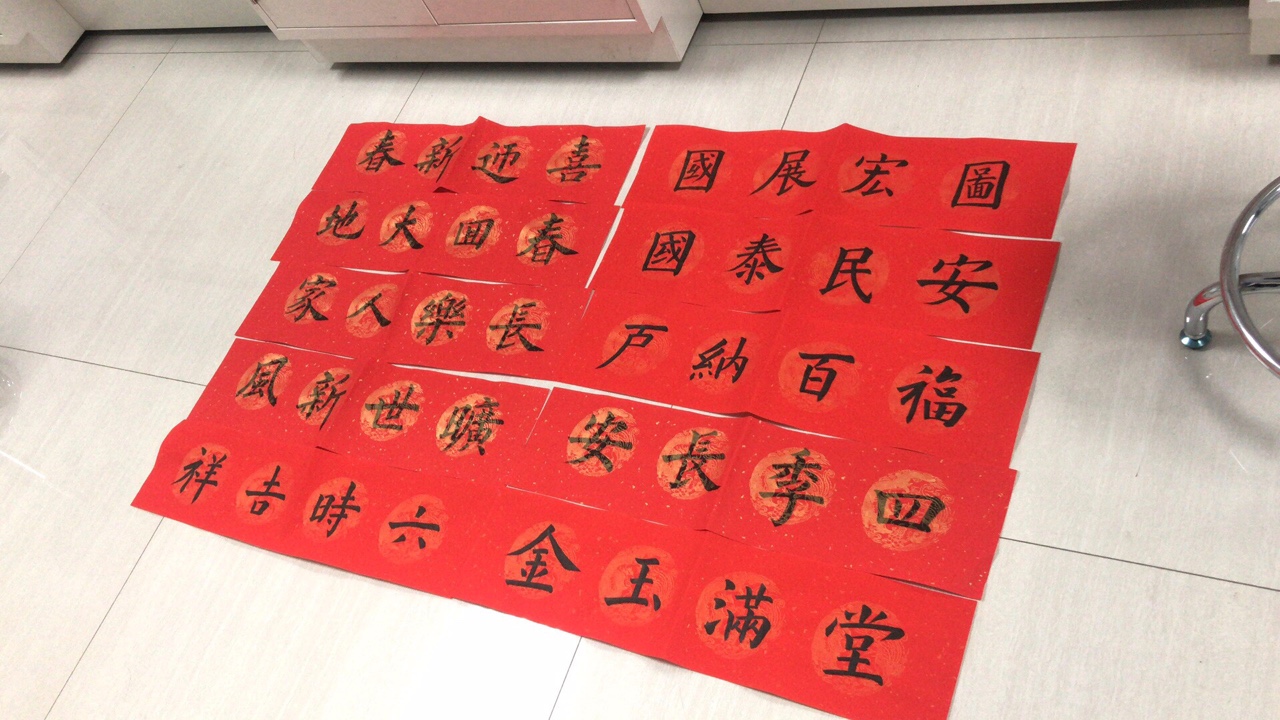 喜迎新春
春囬大地
長樂人家
曠世新風
六時吉祥
國展宏圖
國泰民安
戸納百福
四季長安
金玉滿堂